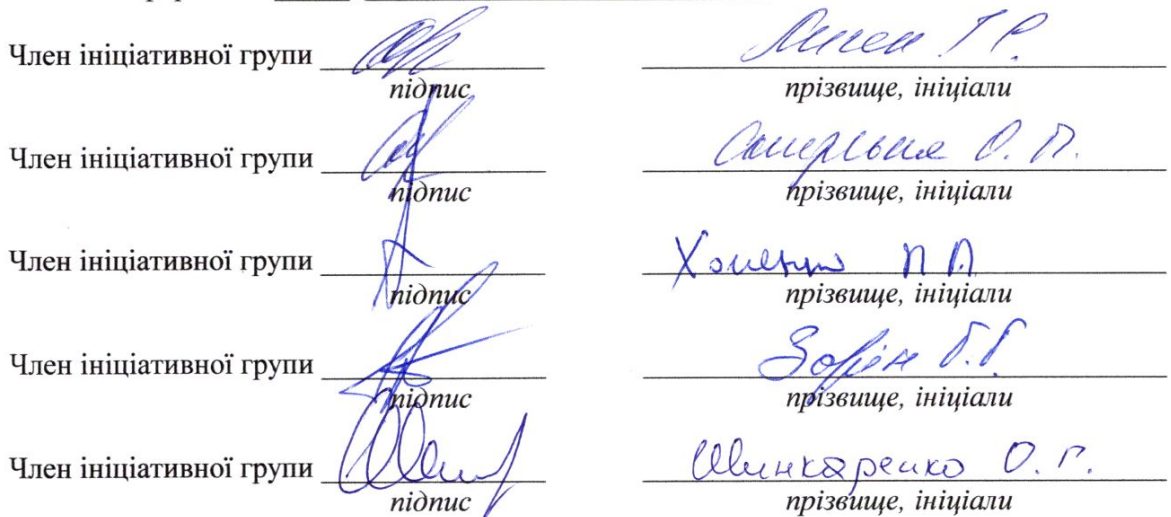 Член ініціативної групи
підпис прізвище, ініціали
Член ініціативної групи О. П.
підпис прізвище, ініціали
Член ініціативної групи
підпис прізвище, ініціали
Член ініціативної групи Зорін
підпис прізвище, ініціали
Член ініціативної групи Шинкаренко О. Г.
підпис прізвище, ініціали